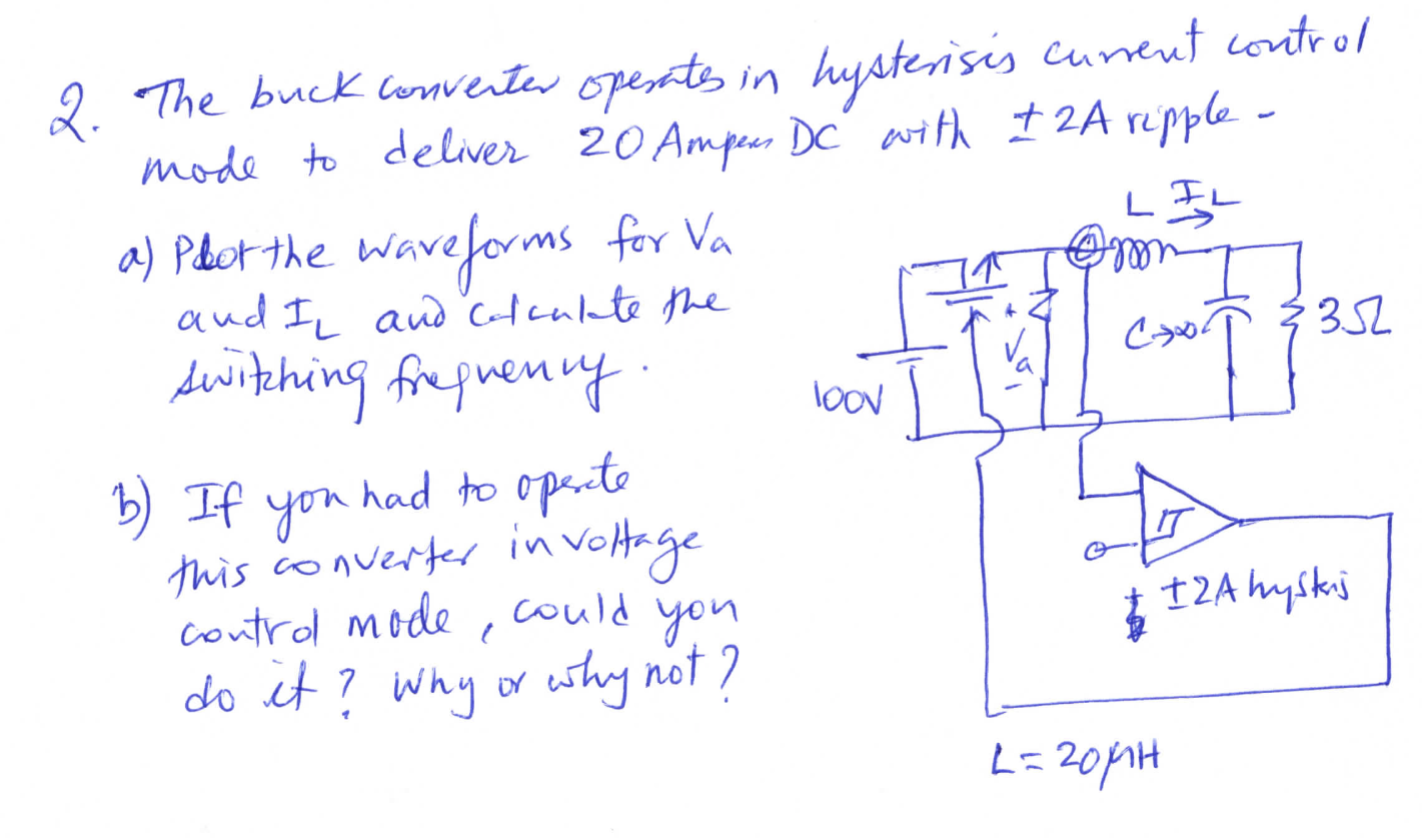 2. The buck converter operates in hysterisis current control
mode to deliver 20 Amperes DC with ±2A ripple -
a) Plot the waveforms for Va
and IL and calculate the
switching frequency.
b) If you had to operate
this converter in voltage
control mode, could you
do it? Why or why not?
L IL
100V
+
Va
-
C→∞
3Ω
±2A hystris
L = 20μH